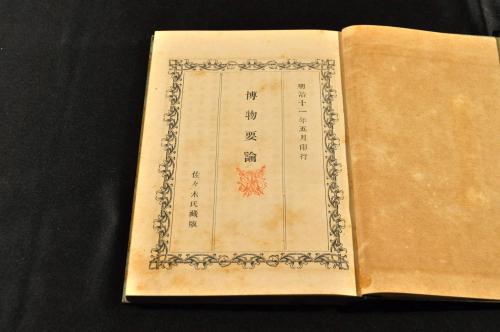 明治十一年五月印行
博物要論
佐々木氏蔵版